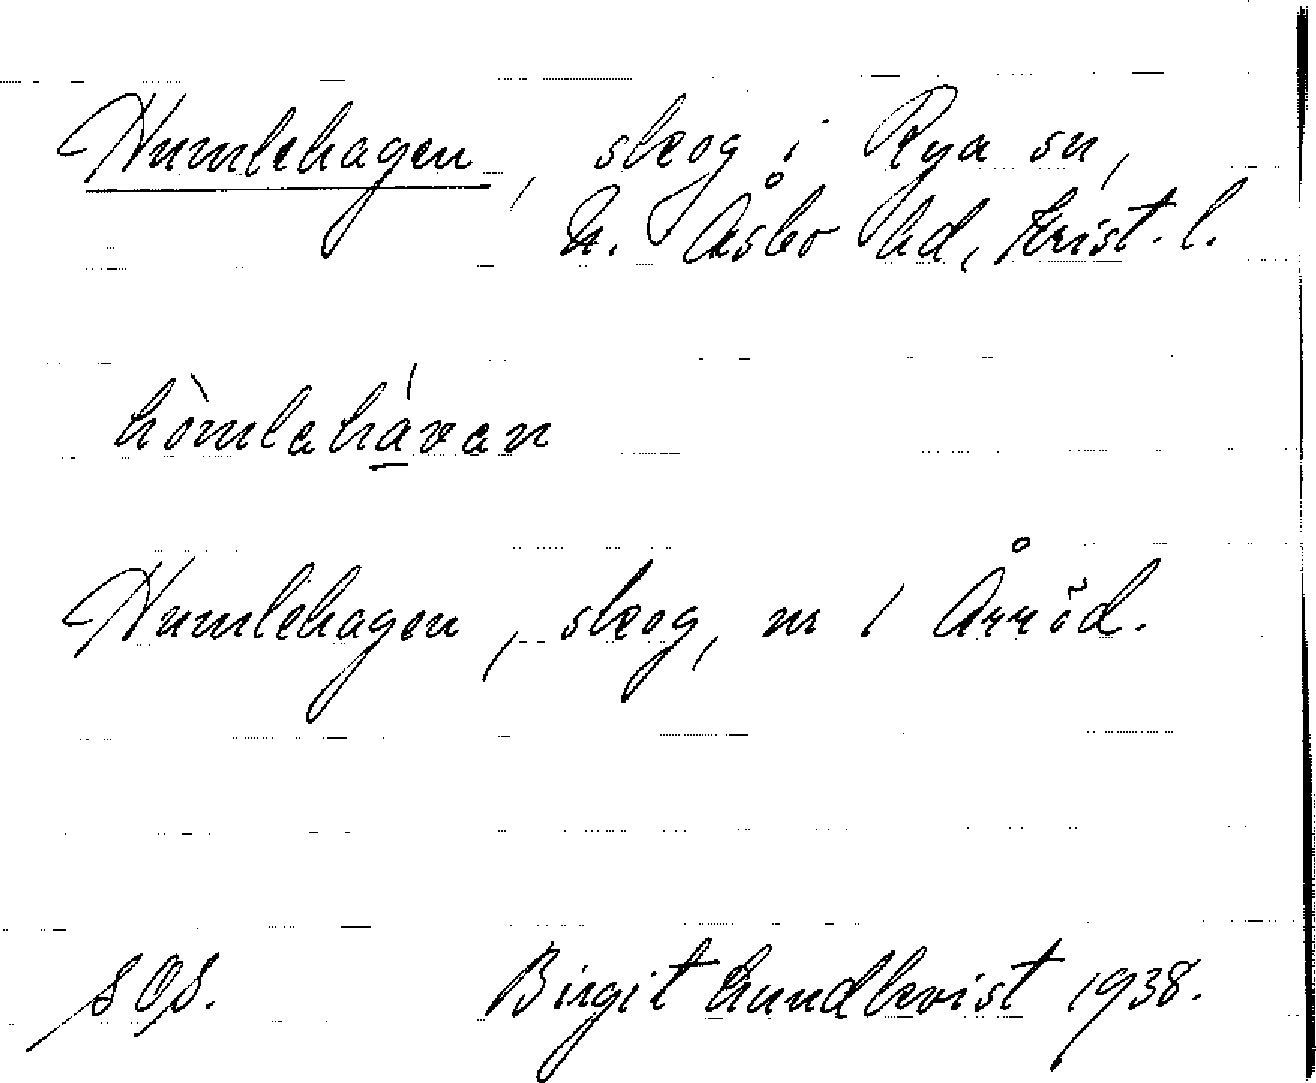 Humlehagen, skog i Rya sn,
N. Åsbo hd, Krist. l.
hòmlahávan
Humlehagen, skog, nr 1 Årröd.
SOS. Birgit Lundkvist 1938.